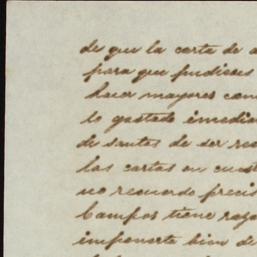 de que la carta de a
para que pudieses
hacer mayores com
lo gastado inmedia
de santes de ser rec
las cartas en cuest
no recuerdo precis
Campos tiene razo
imponerte bien de